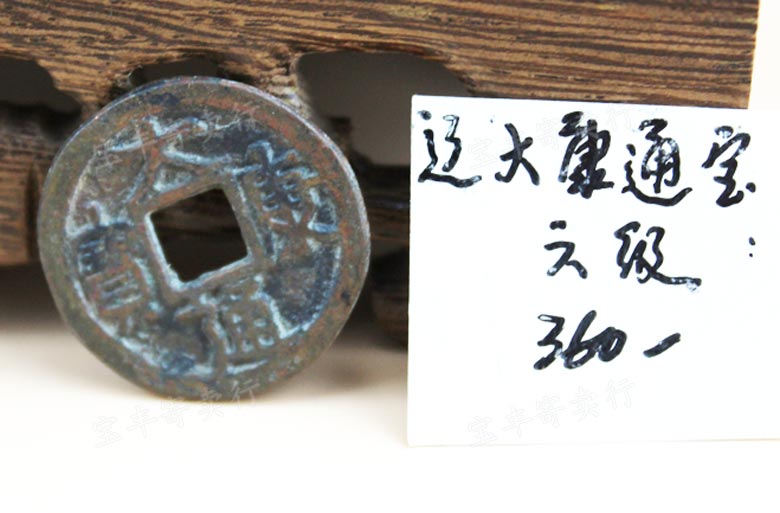 大康通寶
辽大康通宝
六级:
360-
宝丰寄卖行
宝丰寄卖行
宝丰寄卖行
宝丰寄卖行